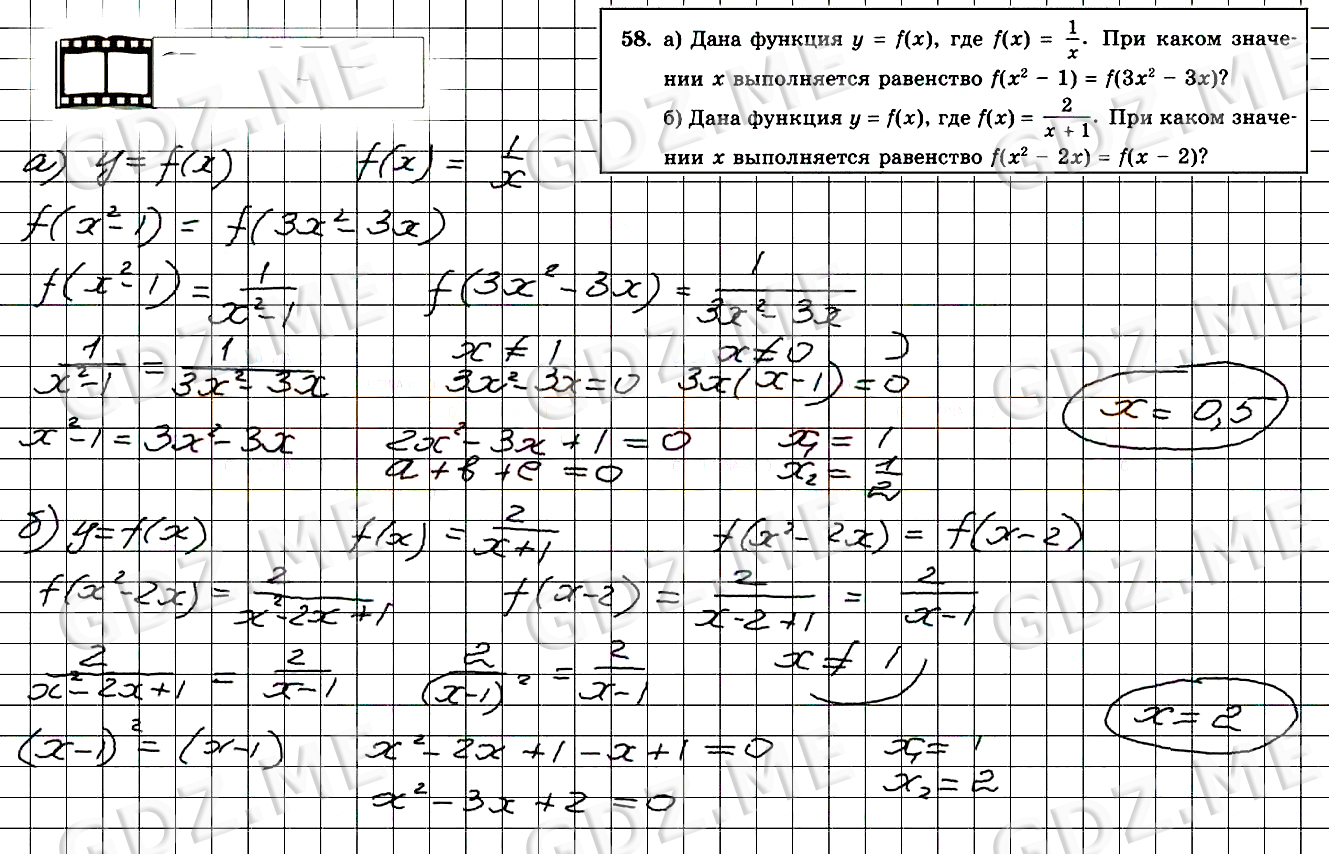 58. а) Дана функция y = f(x), где f(x) = 1/x. При каком значе-
нии x выполняется равенство f(x² − 1) = f(3x² − 3x)?
б) Дана функция y = f(x), где f(x) = 2/(x + 1). При каком значе-
нии x выполняется равенство f(x² − 2x) = f(x − 2)?
а) y = f(x) f(x) = 1/x
f(x² − 1) = f(3x² − 3x)
f(x² − 1) = 1/(x² − 1) f(3x² − 3x) = 1/(3x² − 3x)
1/(x² − 1) = 1/(3x² − 3x) x ≠ 1 x ≠ 0
3x² − 3x = 0 3x(x − 1) = 0
x = 0,5
x² − 1 = 3x² − 3x 2x² − 3x + 1 = 0 x₁ = 1
a + b + c = 0 x₂ = 1/2
б) y = f(x) f(x) = 2/(x + 1) f(x² − 2x) = f(x − 2)
f(x² − 2x) = 2/(x² − 2x + 1) f(x − 2) = 2/(x − 2 + 1) = 2/(x − 1)
2/(x² − 2x + 1) = 2/(x − 1) 2/(x − 1)² = 2/(x − 1) x ≠ 1
x = 2
(x − 1)² = (x − 1) x² − 2x + 1 − x + 1 = 0 x₁ = 1
x² − 3x + 2 = 0 x₂ = 2
GDZ.ME